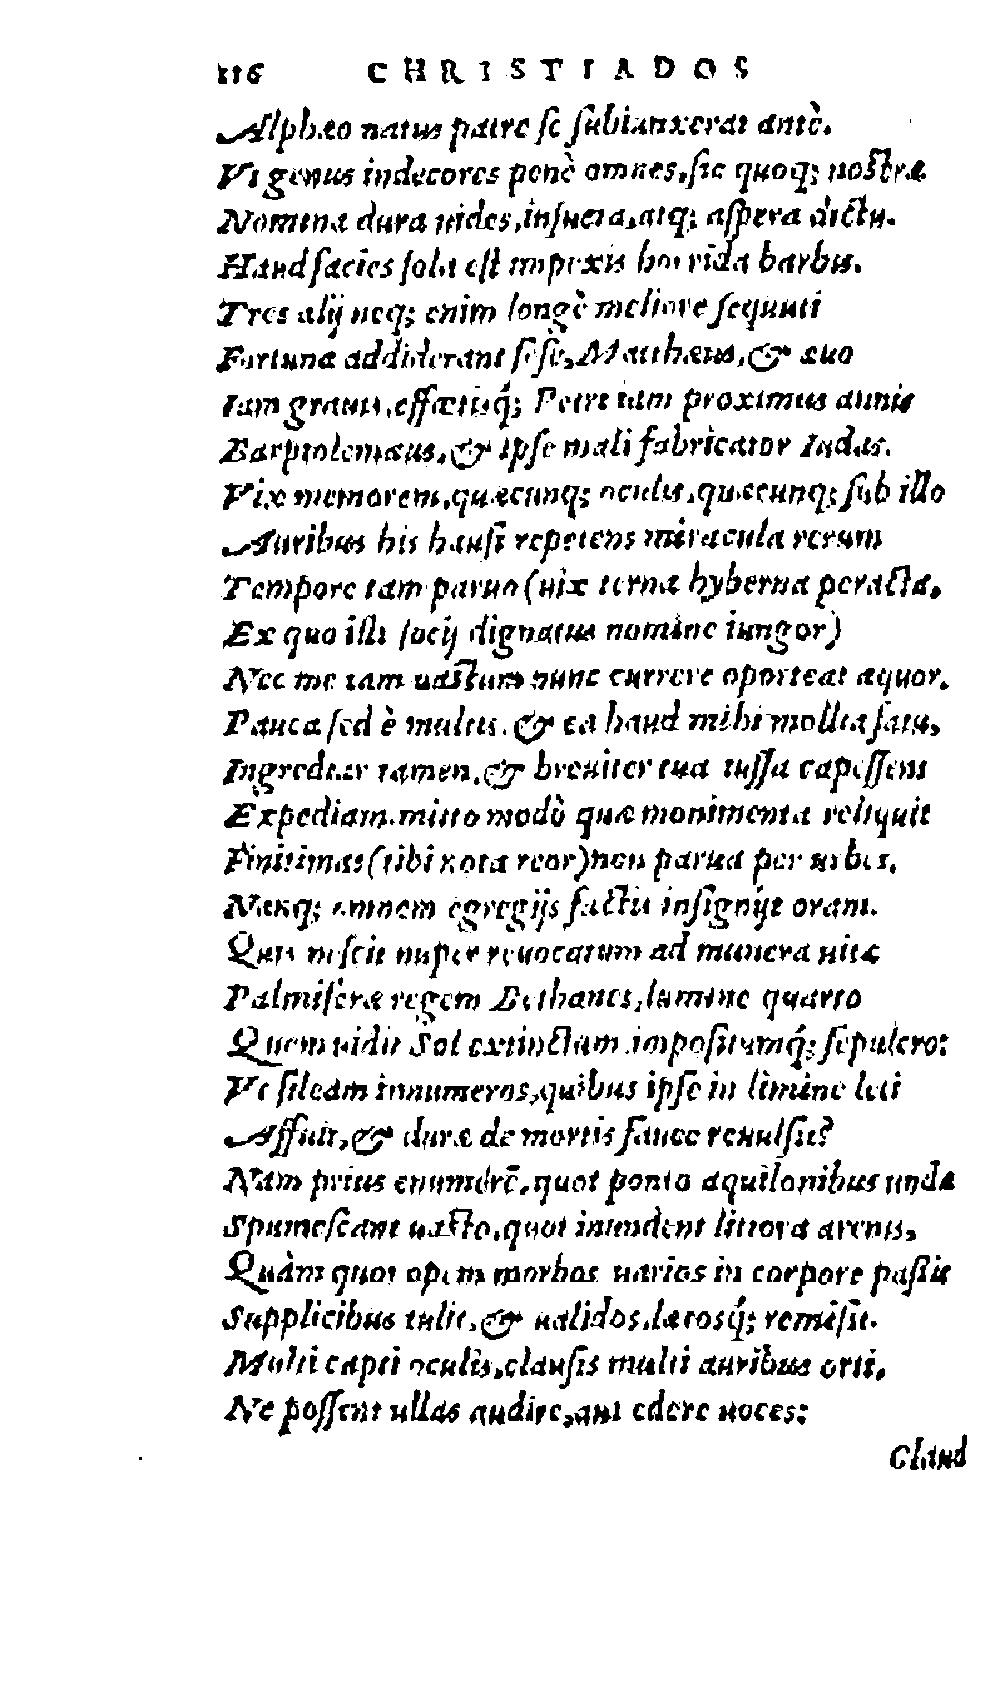 116 CHRISTIADOS
Alphæo natus patre se subiunxerat antè.
Vt genus indecores penè omnes, sic quoq; nostra
Nomina dura uides, insueta, atq; aspera dictu.
Haud facies sola est impexis horrida barbis.
Tres alij neq; enim longè meliore sequuti
Fortuna addiderant sese, Matthæus, & æuo
Iam grauis, effœtusq́; Petri iam proximus annis
Barptolemæus, & ipse mali fabricator Iudas.
Vix memorem, quæcunq; oculis, quæcunq; sub illo
Auribus his hausi repetens miracula rerum
Tempore tam paruo (uix terna hyberna peracta,
Ex quo illi socij dignatus nomine iungor)
Nec me iam uastum nunc currere oporteat æquor.
Pauca sed è multis, & ea haud mihi mollia fatu,
Ingrediar tamen, & breuiter tua iussa capessens
Expediam. mitto modò quæ monimenta reliquit
Finitimas (tibi nota reor) non parua per urbes.
Nanq; omnem egregijs factis insignijt oram.
Quis nescit nuper reuocatum ad munera uitæ
Palmiferæ regem Bethanes, lumine quarto
Quem uidit Sol extinctum impositumq́; sepulcro:
Vt sileam innumeros, quibus ipse in limine leti
Affuit, & duræ de mortis fauce reuulsit?
Nam prius enumerē, quot ponto aquilonibus undæ
Spumescant uasto, quot inundent littora arenis,
Quàm quot opem morbos uarios in corpore passis
Supplicibus tulit, & ualidos, lætosq́; remisit.
Multi capti oculis, clausis multi auribus orti,
Ne possent ullas audire, aut edere uoces:
Claud